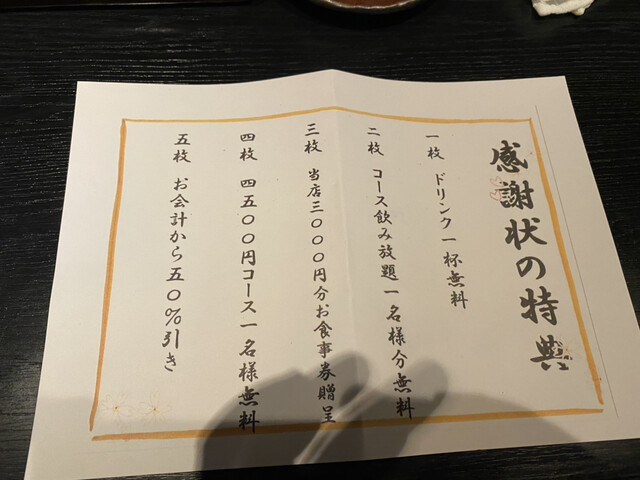 感謝状の特典
一枚 ドリンク一杯無料
二枚 コース飲み放題一名様分無料
三枚 当店三〇〇〇円分お食事券贈呈
四枚 四五〇〇円コース一名様無料
五枚 お会計から五〇%引き